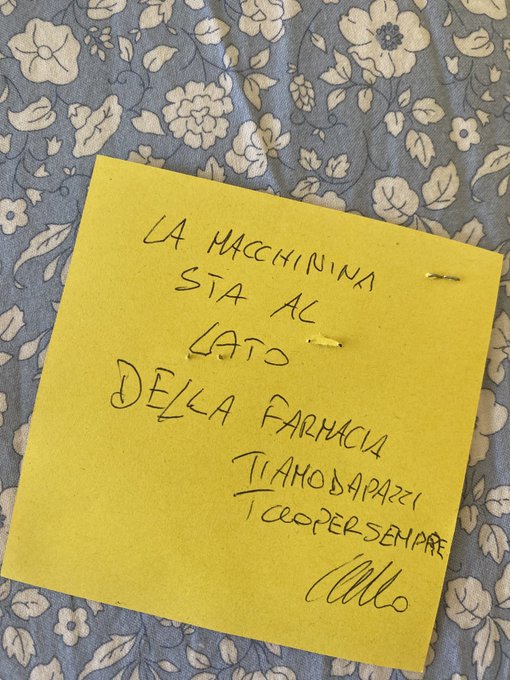 LA MACCHININA
STA AL
LATO
DELLA FARMACIA
TIAMODAPAZZI